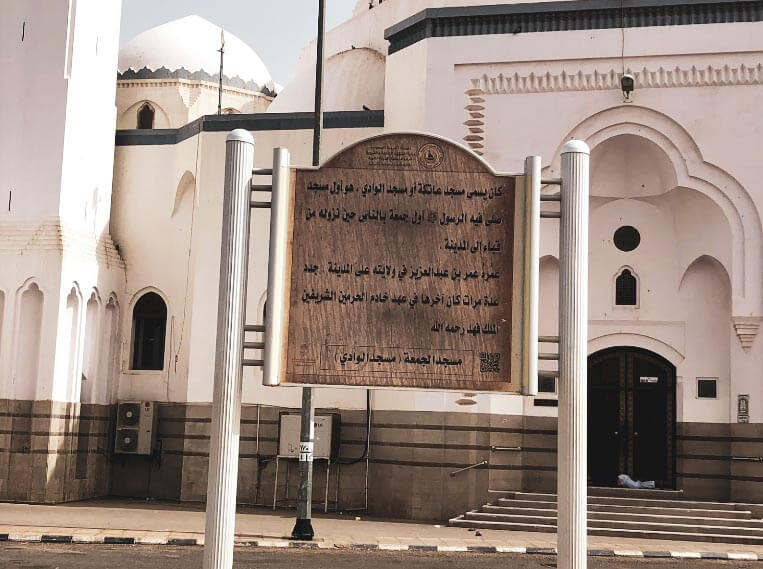 كان يسمى مسجد عاتكة أو مسجد الوادي ، هو أول مسجد
صلى فيه الرسول ﷺ أول جمعة بالناس حين نزوله من
قباء إلى المدينة .
عمره عمر بن عبدالعزيز في ولايته على المدينة . جدد
عدة مرات كان آخرها في عهد خادم الحرمين الشريفين
الملك فهد رحمه الله
مسجد الجمعة ( مسجد الوادي )